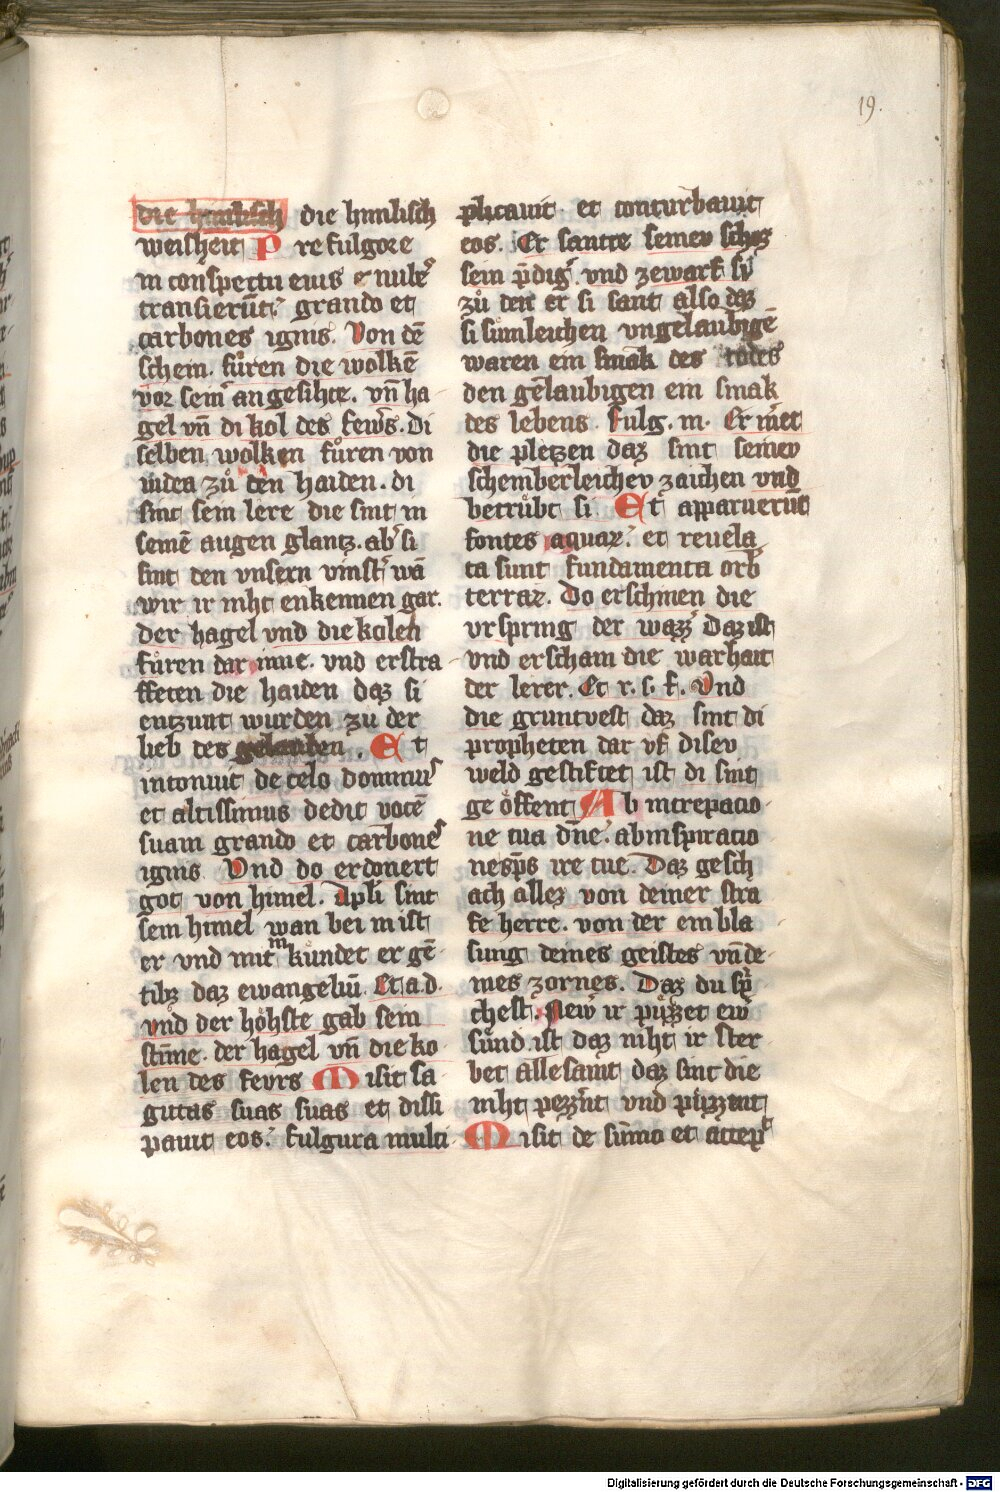 19.
die himlisch die himlisch
weisheit Pre fulgore
in conspectu eius e nubeˢ
transierūt. grando et
carbones ignis. Von dē
schein. fůren die wolkē
vor seim̄ angesihte. vn̄ ha
gel vn̄ di kol des fewˢs. Di
selben wolken fůren von
iudea zů den haiden. di
sint sein lere die sint in
seinē augen glantz. abˢ si
sint den vnsern vinstˢ wā
wir ir niht enkennen gar.
der hagel vnd die kolen
fůren dar inne. vnd erstra
ffeten die haiden daz si
entzunt wurden zu der
lieb des gelauben. Et
intonuit de celo dominus
et altissimus dedit vocē
suam grando et carbones
ignis Vnd do erdonert
got von himel. Apl̄i sint
sein himel wan bei in ist
er vnd mit in kůndet er gē
tibz daz ewangeliū. Et a.d.
vnd der höhste gab sein
stīme. der hagel vn̄ die ko
len des fevrs Misit sa
gittas suas suas et dissi
pauit eos. fulgura multi
plicauit et conturbauit
eos. Er sante seinev schoz
sein p̄digˢ. vnd zewarf si
zů den er si sant also daz
si sūnleichen vngelaubigē
waren ein smak des todes
den gēlaubigen ein smak
des lebens. fulg. m. Er mˢet
die pletzen daz sint seinev
schemberleichev zaichen vnd
betrůbt si Et apparuerūt
fontes aquarꝫ et reuela
ta sunt fundamenta orb
terrarꝫ. Do erschinen die
vrspring der wazzˢ Daz ist
vnd erscham die warhait
der lerer. Et r. s. f. Vnd
die gruntvest daz sint di
propheten dar vf disev
weld gestiftet ist di sint
ge öffent Ab increpacio
ne tua dn̄e. ab inspiracio
ne sp̄s ire tue. Daz gesch
ach allez von deiner stra
fe herre. von der einbla
sung deines geistes vn̄ de
ines zornes. Daz du sp̄
chest. New ir půzzet ew
sůnd ist daz niht ir ster
bet alle samt daz sint die
niht pezzˢnt vnd půzzent
Misit de sūmo et accep
Digitalisierung gefördert durch die Deutsche Forschungsgemeinschaft - DFG